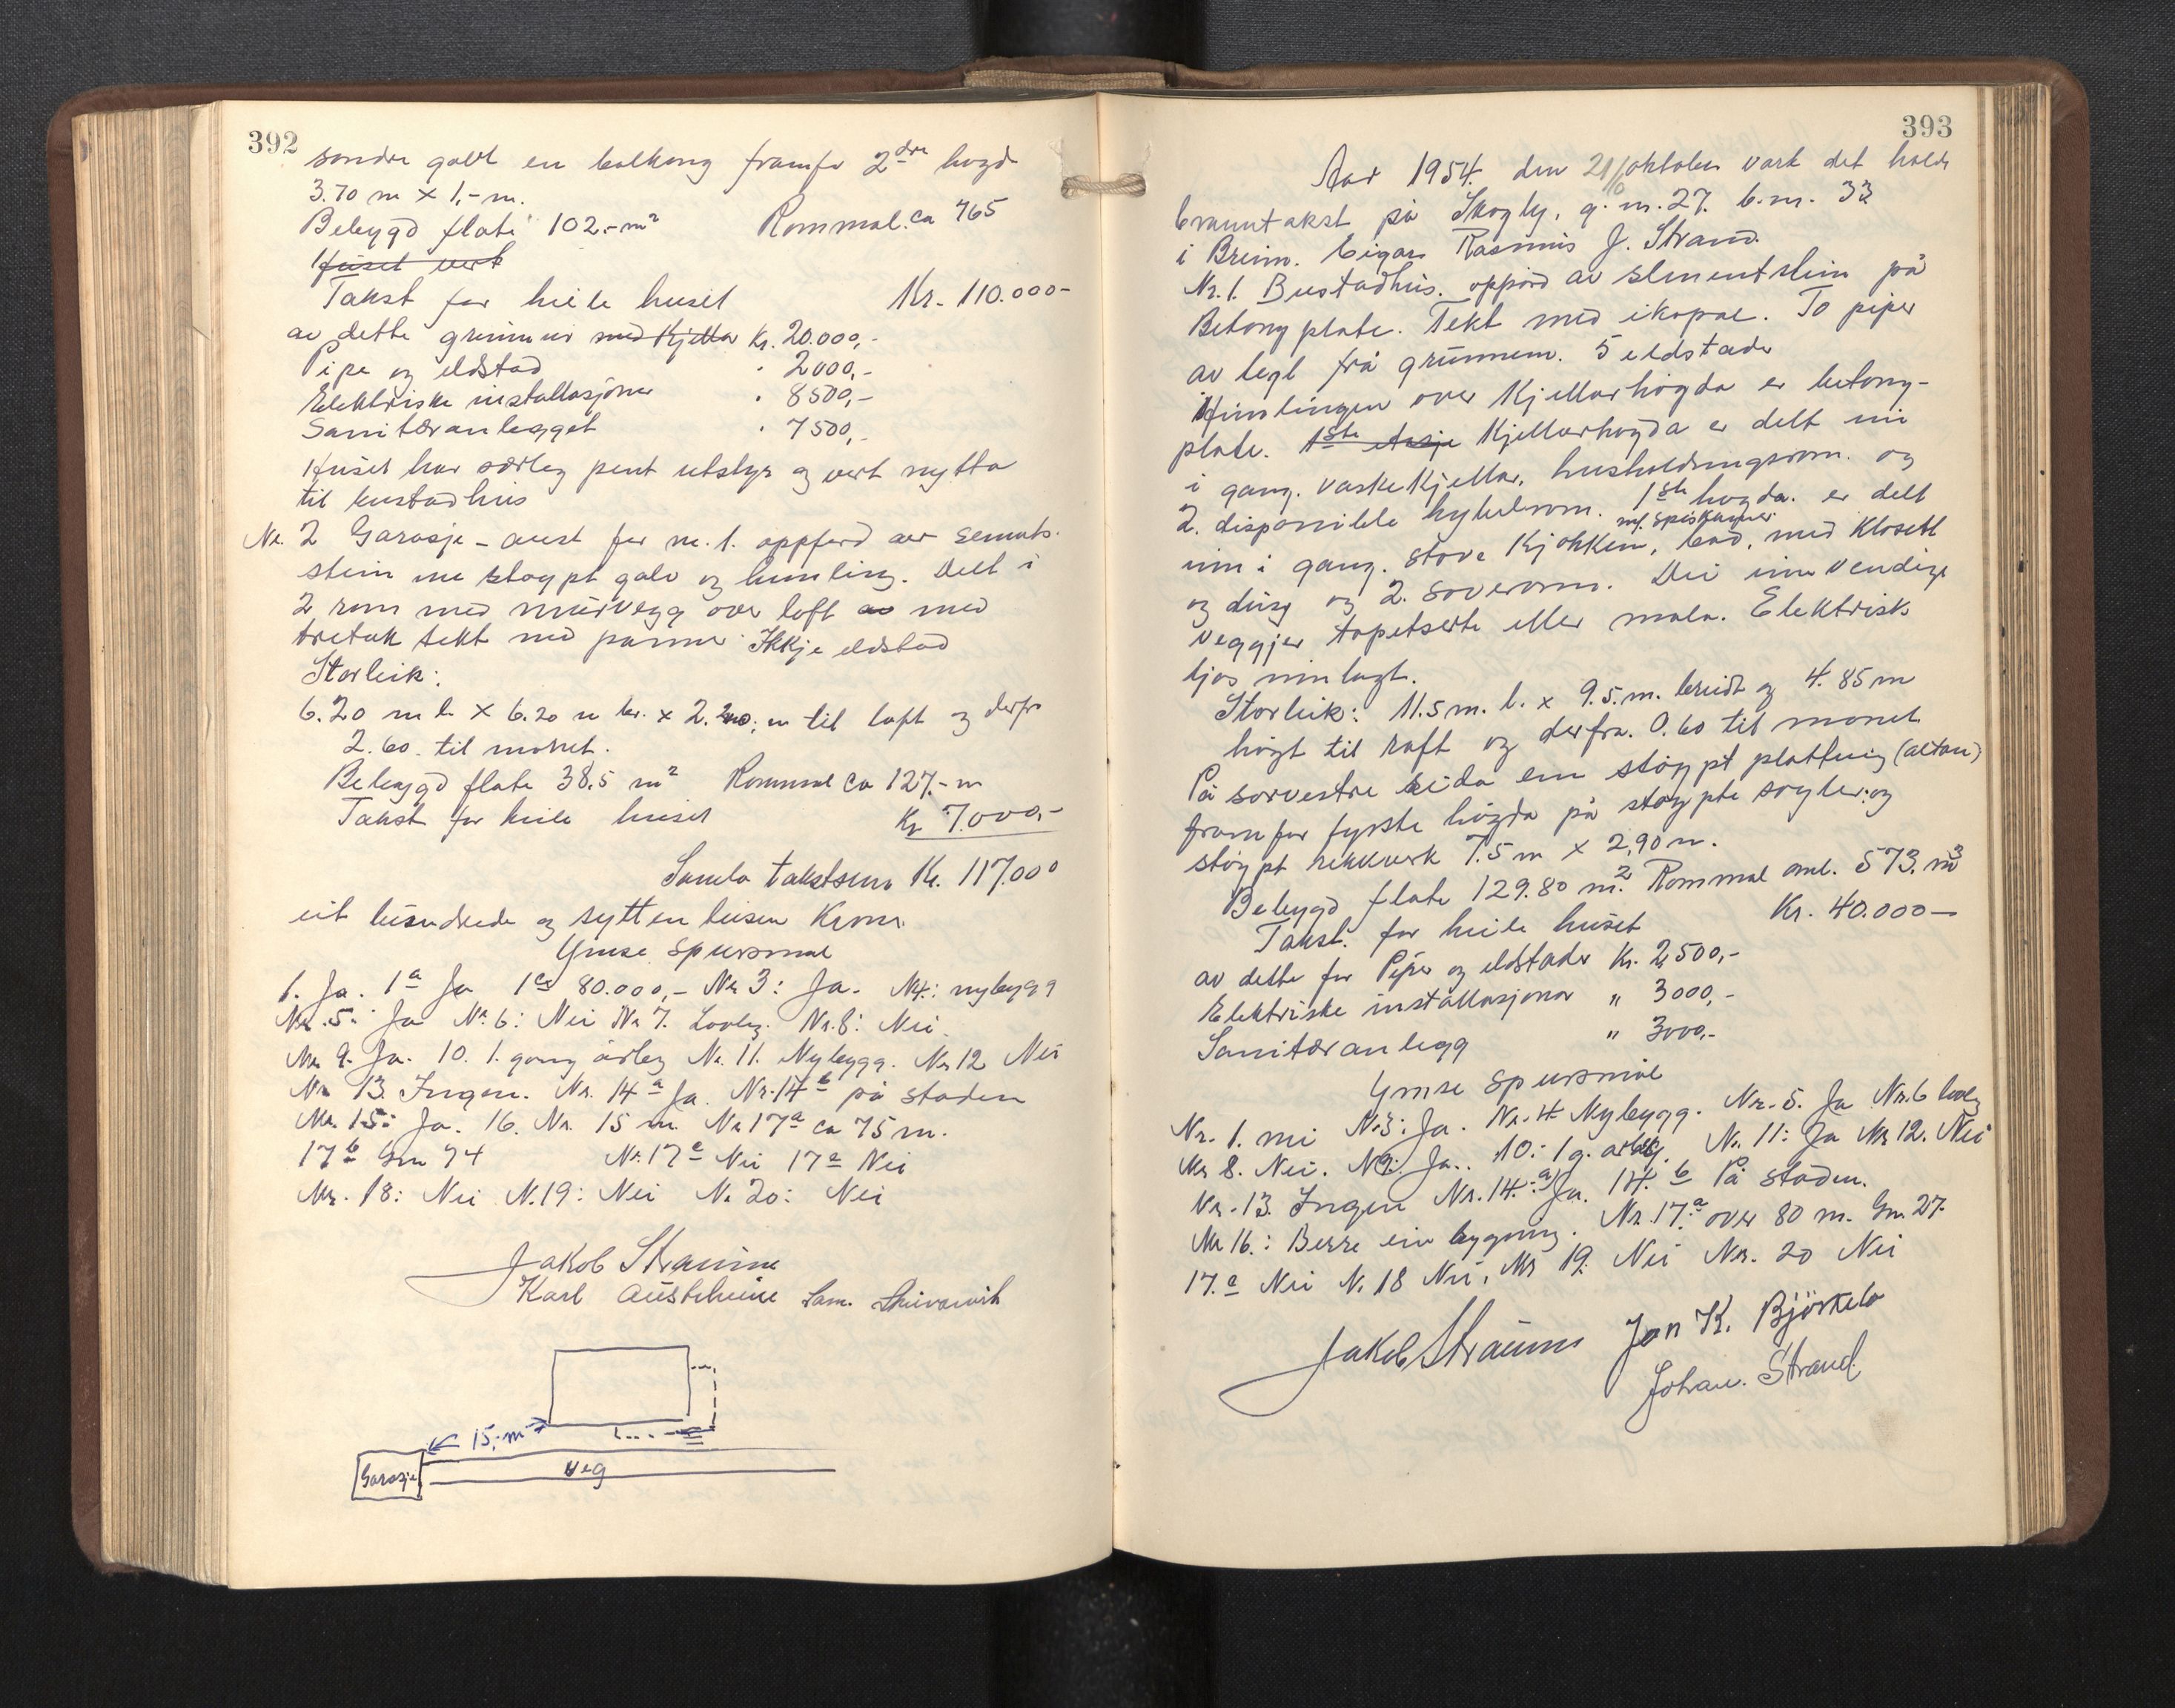 392
söndre gavl en balkong framfor 2dre högd
3.70 m x 1,- m.
Bebygd flate 102.- m² Rommål. ca 765
Huset vert
Takst for heile huset Kr. 110.000-
av dette grunnmur med Kjellar Kr. 20.000,-
Pipe og eldstad " 2000,-
Elektriske installasjoner " 8500,-
Sanitæranlegget " 7500,-
Huset har særleg pent utstyr og vert nytta
til bustadhus
Nr. 2 Garasje - aust for nr. 1. oppförd av sements-
stein med stöypt golv og himling. Delt i
2 rom med murvegg over loft av med
tretak tekt med panner Ikkje eldstad
Storleik:
6.20 m l. x 6.20 m br. x 2.20. m til loft og derfra
2.60. til mönet.
Bebygd flate 38.5 m² Rommål ca 127.- m
Takst for heile huset Kr 7.000,-
Samla takstsum Kr. 117.000
eit hundrede og sytten tusen Kroner.
Ymse spursmål
1. Ja. 1a Ja 1c 80.000,- Nr 3: Ja. Nr 4: nybygg
Nr. 5: Ja Nr. 6: Nei Nr 7. Lovleg. Nr. 8: Nei.
Nr 9. Ja. 10. 1. gong årleg Nr. 11. Nybygg. Nr 12 Nei
Nr 13. Ingen. Nr. 14a Ja. Nr. 14b på staden
Nr. 15: Ja. 16. Nr. 15 m. Nr 17a ca 75 m.
17b Gm 74 Nr. 17c Nei 17e Nei
Nr. 18: Nei N. 19: Nei N. 20: Nei
Jakob Straume
Karl Austrheim Sam.
15,- m
Garasje
veg
393
Aar 1954. den 21/10 oktober vart det halde
branntakst på Skogly, g. nr. 27. b. nr. 33
i Breim. Eigar Rasmus J. Strand.
Nr. 1. Bustadhus. oppförd av sementstein på
Betongplate. Tekt med ikopal. To piper
av tegl frå grunnen. 5 eldstader
Himlingen over Kjellarhögda er betong-
plate. 1ste etasje Kjellarhögda er delt inn
i gang. vaskekjellar, husholdningsrom. og
2. disponible hybelrom. 1ste högda. er delt
m/. spiskamer.
inn i gang. stove Kjökken, bad, med Klosett
og dusj og 2. soverom. Dei innvendige
veggjer tapetserte eller mala. Elektrisk
ljos innlagt.
Storleik: 11.5 m. l. x 9.5. m. breidt og 4.85 m
högt til raft og derfra. 0.60 til mönet
På sörvestre sida ein stöypt plattning (altan)
framfor fyrste högda på stöypte söyler. og
stöypt rekkverk 7.5 m x 2,90 m.
Bebygd flate 129.80 m². Rommål oml. 573. m³
Takst. for heile huset Kr. 40.000-
av dette for Piper og eldstader Kr. 2,500,-
Elektriske installasjonar " 3000,-
Sanitæranlegg " 3000,-
Ymse spursmål
Nr. 1. nei Nr. 3: Ja. Nr. 4 Nybygg. Nr. 5. Ja Nr. 6 lovleg
Nr 8. Nei. N 9: Ja. 10: 1 g. årleg. Nr. 11: Ja Nr 12. Nei
Nr. 13. Ingen Nr. 14. a) Ja. 14. b På staden.
Nr 16.: Berre ein bygning. Nr. 17.a over 80 m. Gm. 27.
17.c Nei N. 18 Nei, Nr 19. Nei Nr. 20 Nei
Jakob Straume Jon K. Björkelo
Johan. Strand